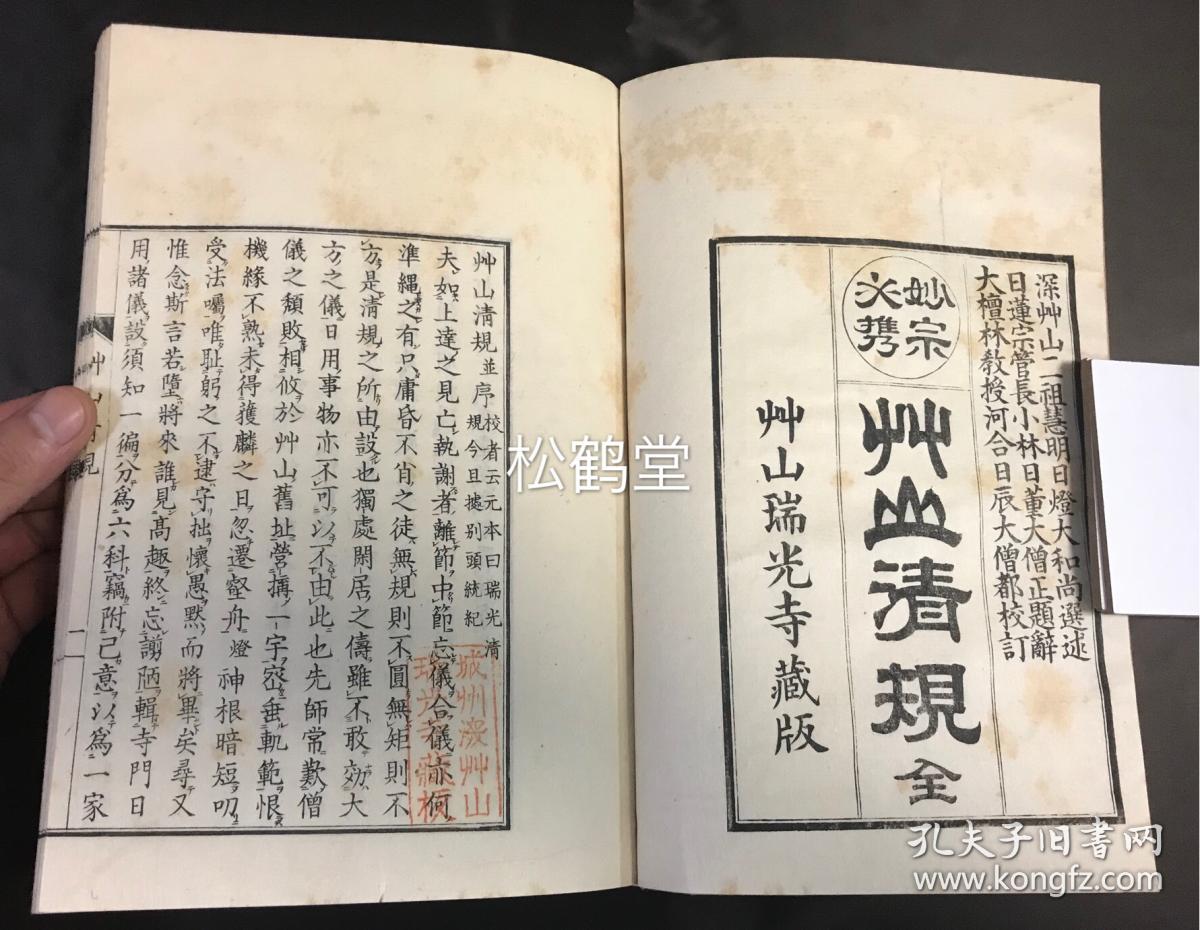 深艸山二祖慧明日燈大和尚選述
日蓮宗管長小林日董大僧正題辭
大檀林教授河合日辰大僧都校訂
妙宗
艸山清規全
艸山瑞光寺藏版
艸山清規並序
校者云元本曰瑞光清
規今且據别頭統紀
夫如上達之見亡執謝者離節中節忘儀合儀亦何
準繩之有只庸昏不肖之徒無規則不圓無矩則不
方是清規之所由設也獨處閑居之儔雖不敢効大
方之儀日用事物亦不可以不由此也先師常歎僧
儀之頽敗相攸於艸山舊址營搆一宇密垂軌範恨
機緣不熟未得獲麟之日忽遷壑舟燈神根暗短叨
受法囑唯耻躬之不逮守拙懷愚默而將畢矣尋又
惟念斯言若墮將來誰見髙趣終忘謭陋輯寺門日
用諸儀設須知一徧分爲六科竊附己意以爲一家
城州深艸山
瑞光寺藏板
艸山清規
一
松鹤堂
孔夫子旧书网
www.kongfz.com